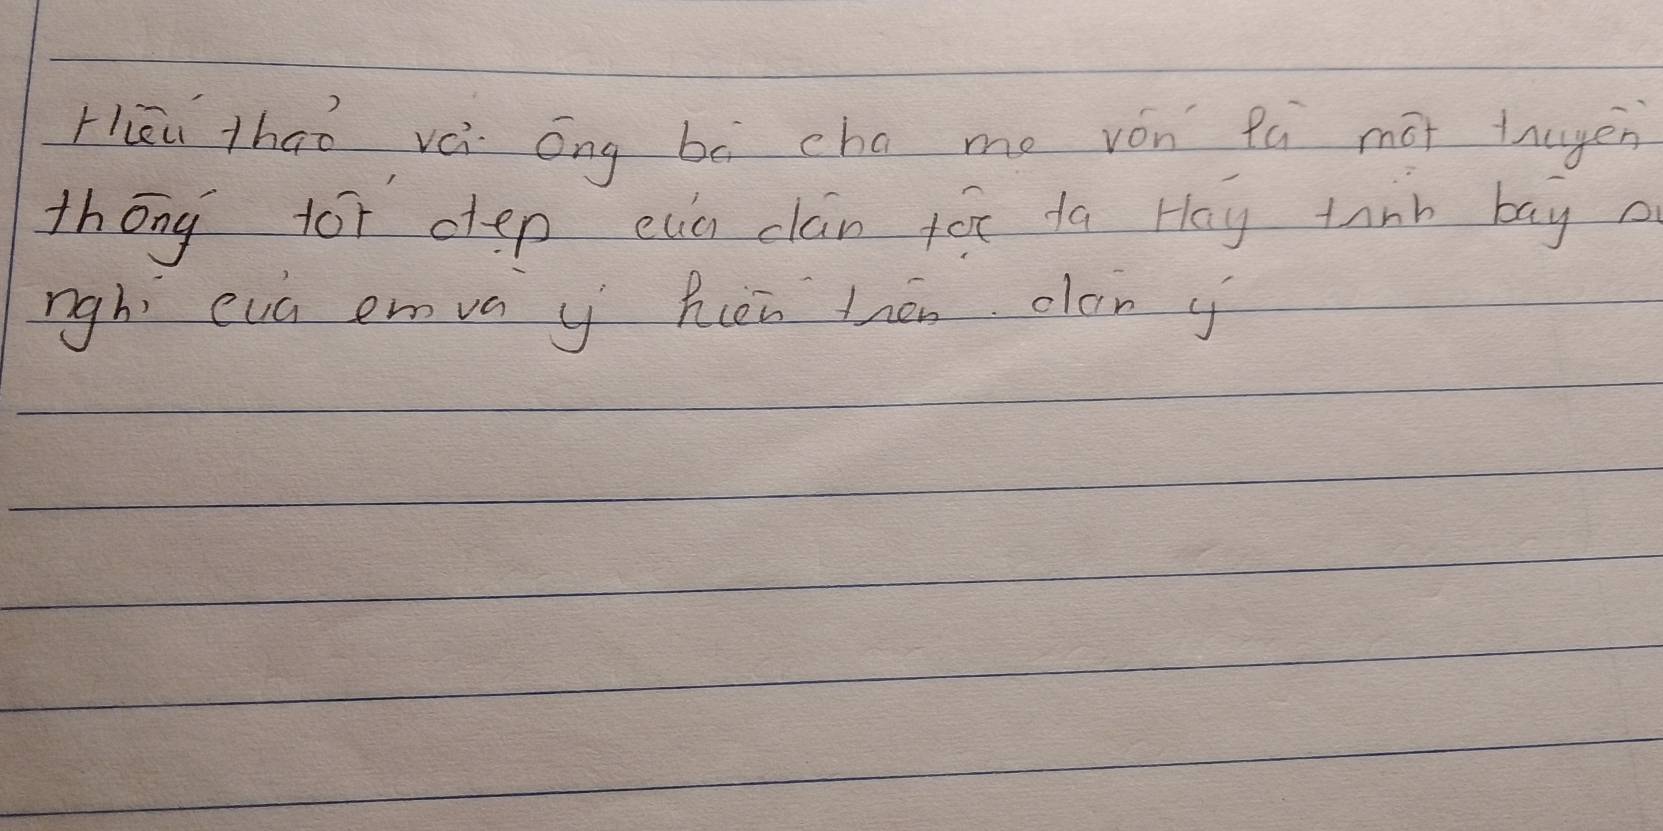 Hiếu thảo với ông bà cha mẹ vốn là một truyền
thống tốt đẹp của dân tộc ta Hãy trình bày
nghĩ của em và ý kiến trên. dàn ý